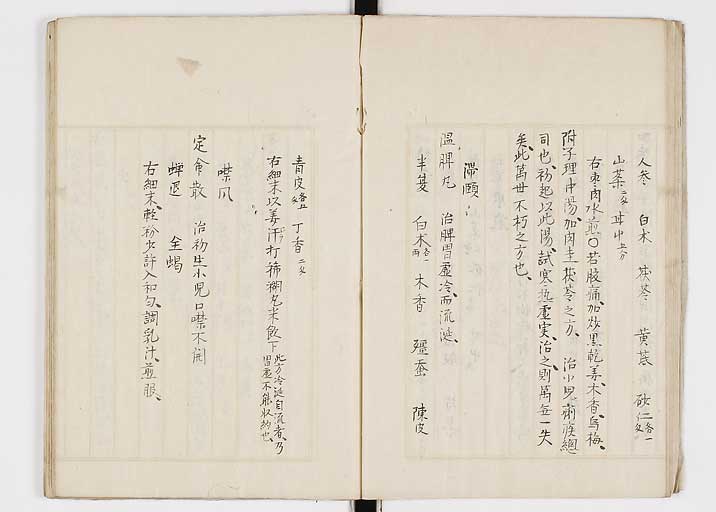 人参 白朮 茯苓 黄芪 砂仁各一匁
山薬二匁 甘中五分
右枣肉水煎○若腹痛加炒黒乾姜木香烏梅
附子理中湯加肉圭茯苓之方 治小児痢疾總
司也初起以此湯試寒热虚実治之則萬毎一失
矣此萬世不朽之方也
滞頤
温脾丸 治脾胃虚冷而流涎
半夏 白朮各一両 木香 殭蚕 陳皮
青皮各五匁 丁香二匁
右細末以姜汁打稀糊丸米飲下此方冷涎自流者乃胃虚不能收約也
噤风
定命散 治初生小児口噤不開
蝉退 全蝎
右細末軽粉少許入和匀調乳汁煎服